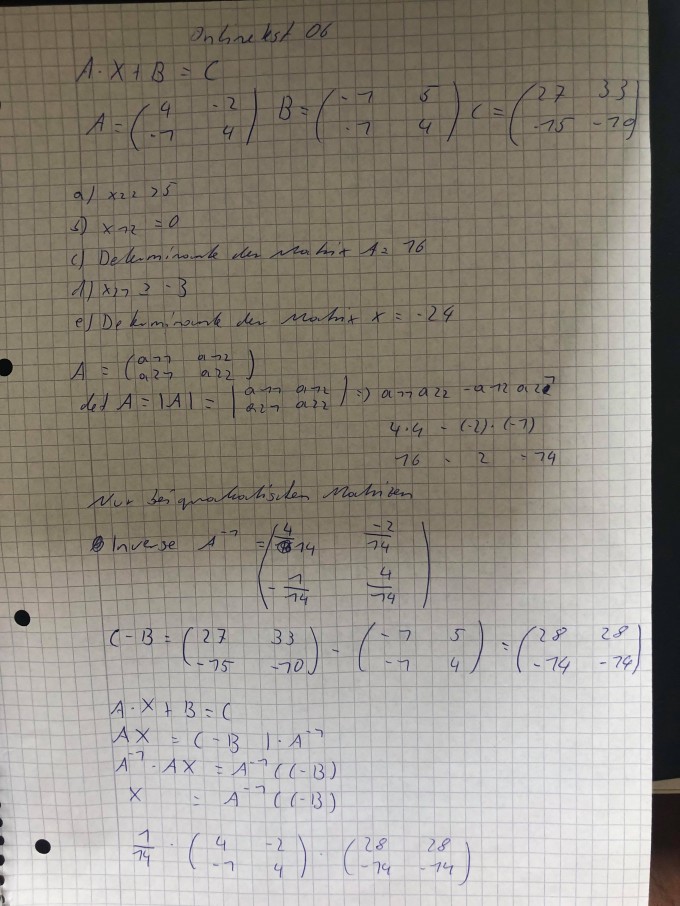 Onlinetest 06
A · X + B = C
A = ( 4 -2 ) B = ( -1 5 ) C = ( 27 33 )
-1 4 -1 4 -15 -10
a) x22 > 5
b) x12 = 0
c) Determinante der Matrix A = 16
d) x11 > -3
e) Determinante der Matrix X = -24
A = ( a11 a12 )
a21 a22
det A = |A| = | a11 a12 | => a11 a22 - a12 a21
a21 a22
4·4 - (-2)·(-1)
16 - 2 = 14
Nur bei quadratischen Matrizen
Inverse A⁻¹ = ( 4/14 -2/14 )
-1/14 4/14
C - B = ( 27 33 ) - ( -1 5 ) = ( 28 28 )
-15 -10 -1 4 -14 -14
A · X + B = C
AX = C - B | · A⁻¹
A⁻¹ · AX = A⁻¹ (C - B)
X = A⁻¹ (C - B)
1/14 · ( 4 -2 ) · ( 28 28 )
-1 4 -14 -14